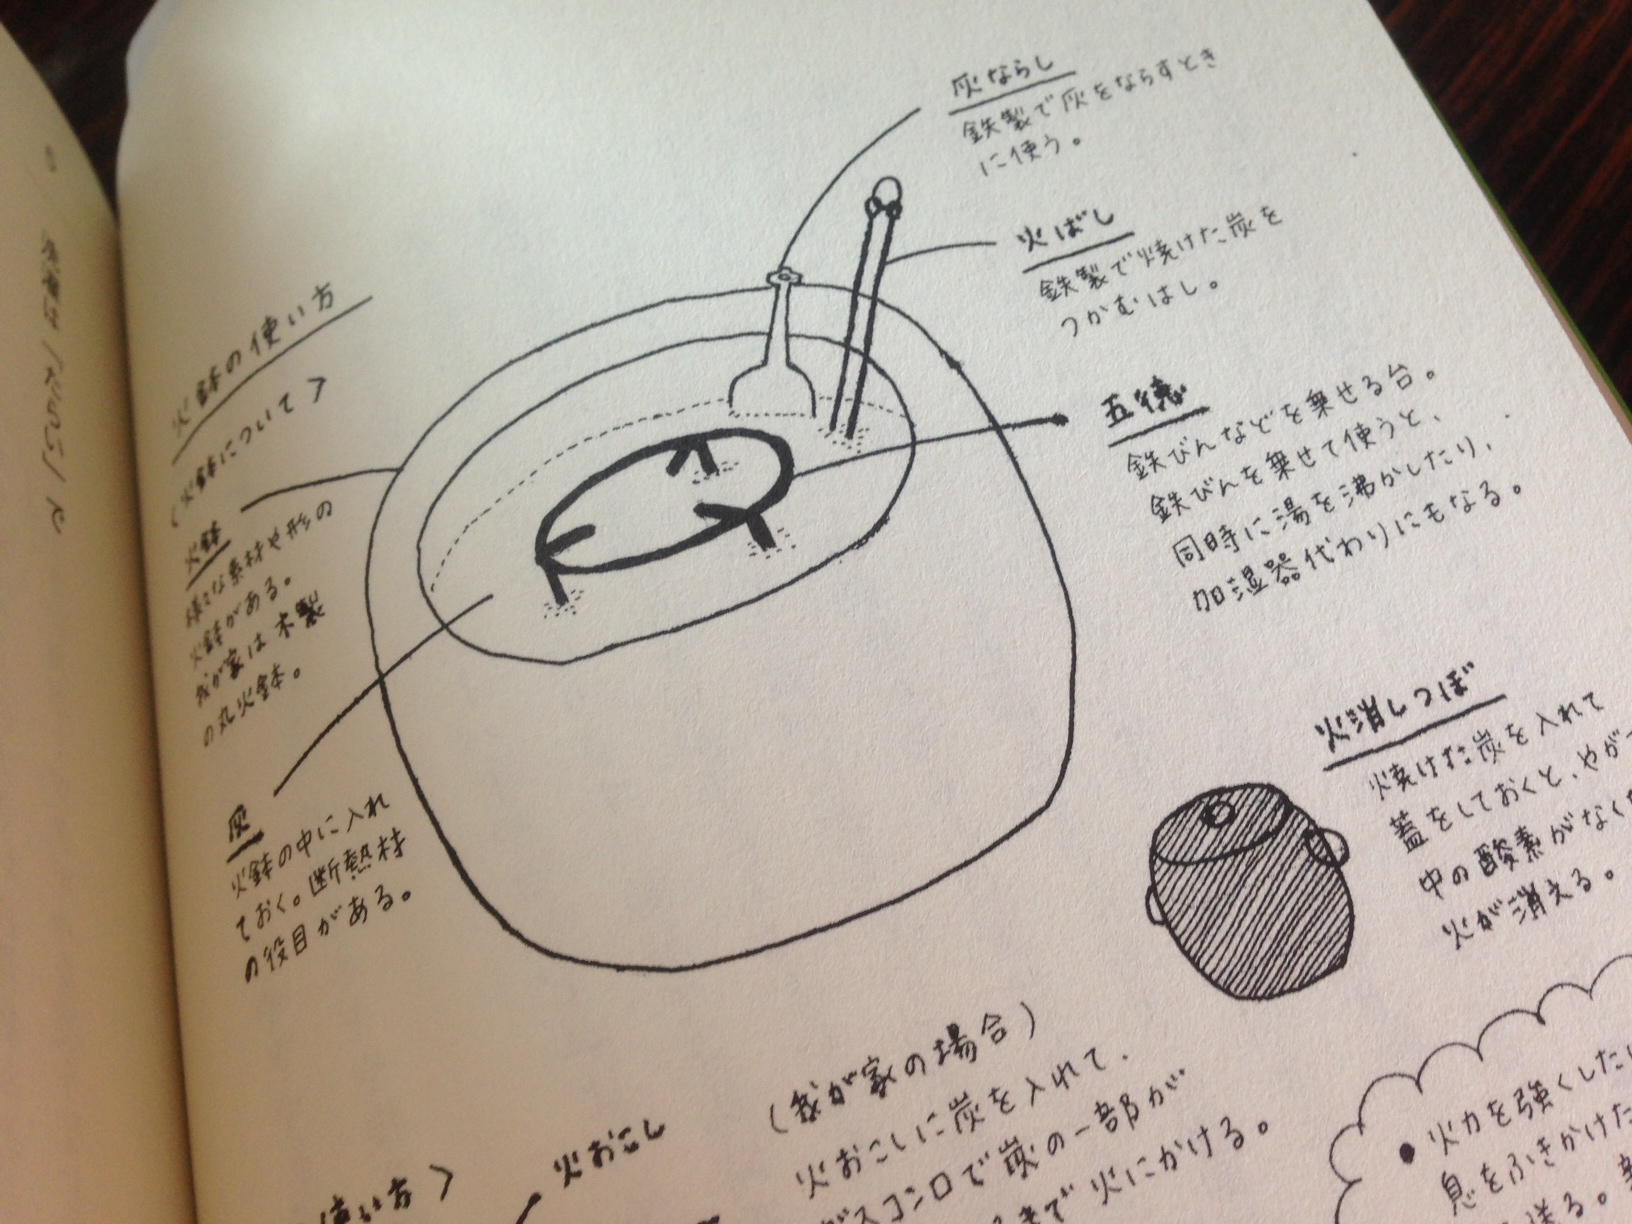 火鉢の使い方
〈火鉢について〉
火鉢
様々な素材や形の
火鉢がある。
我が家は木製
の丸火鉢。
灰
火鉢の中に入れ
ておく。断熱材
の役目がある。
灰ならし
鉄製で灰をならすとき
に使う。
火ばし
鉄製で焼けた炭を
つかむはし。
五徳
鉄びんなどを乗せる台。
鉄びんを乗せて使うと、
同時に湯を沸かしたり、
加湿器代わりにもなる。
火消しつぼ
焼けた炭を入れて
蓋をしておくと、やが
中の酸素がなく
火が消える。
使い方〉
火おこし
(我が家の場合)
火おこしに炭を入れて、
ガスコンロで炭の一部が
まで火にかける。
● 火力を強くした
息をふきかけた
送る。